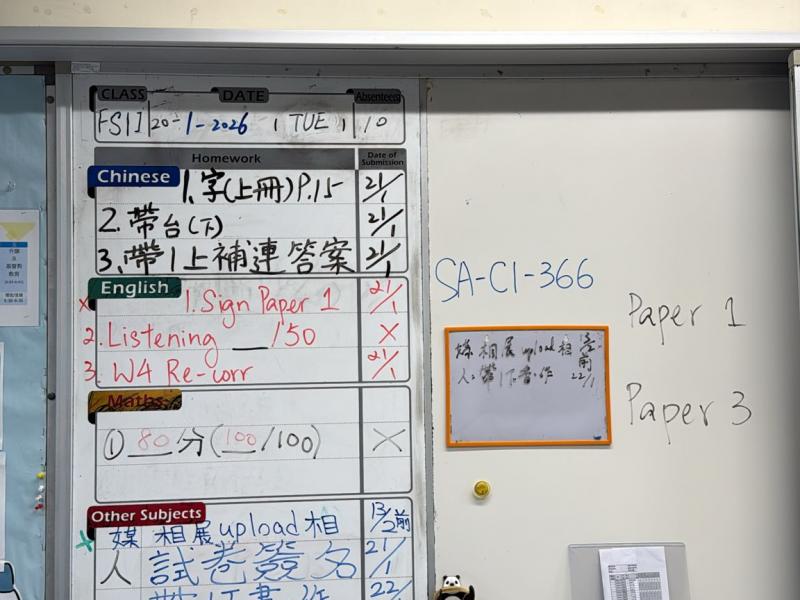 CLASS DATE Absentees
FS1I 20-1-2026 , TUE , 10
Homework Date of Submission
Chinese 1. 字(上冊)P.15 21/1
2. 帶台(下) 21/1
3. 帶1上補連答案 21/1
English 1. Sign Paper 1 21/1
x 2. Listening __/50 X
3. W4 Re-corr 21/1
Maths
① 80分(100/100) X
Other Subjects
媒 相展upload相 13/2前
人 試卷簽名 21/1
22/
SA-C1-366
媒 相展upload相 13/2前
22/1
Paper 1
Paper 3